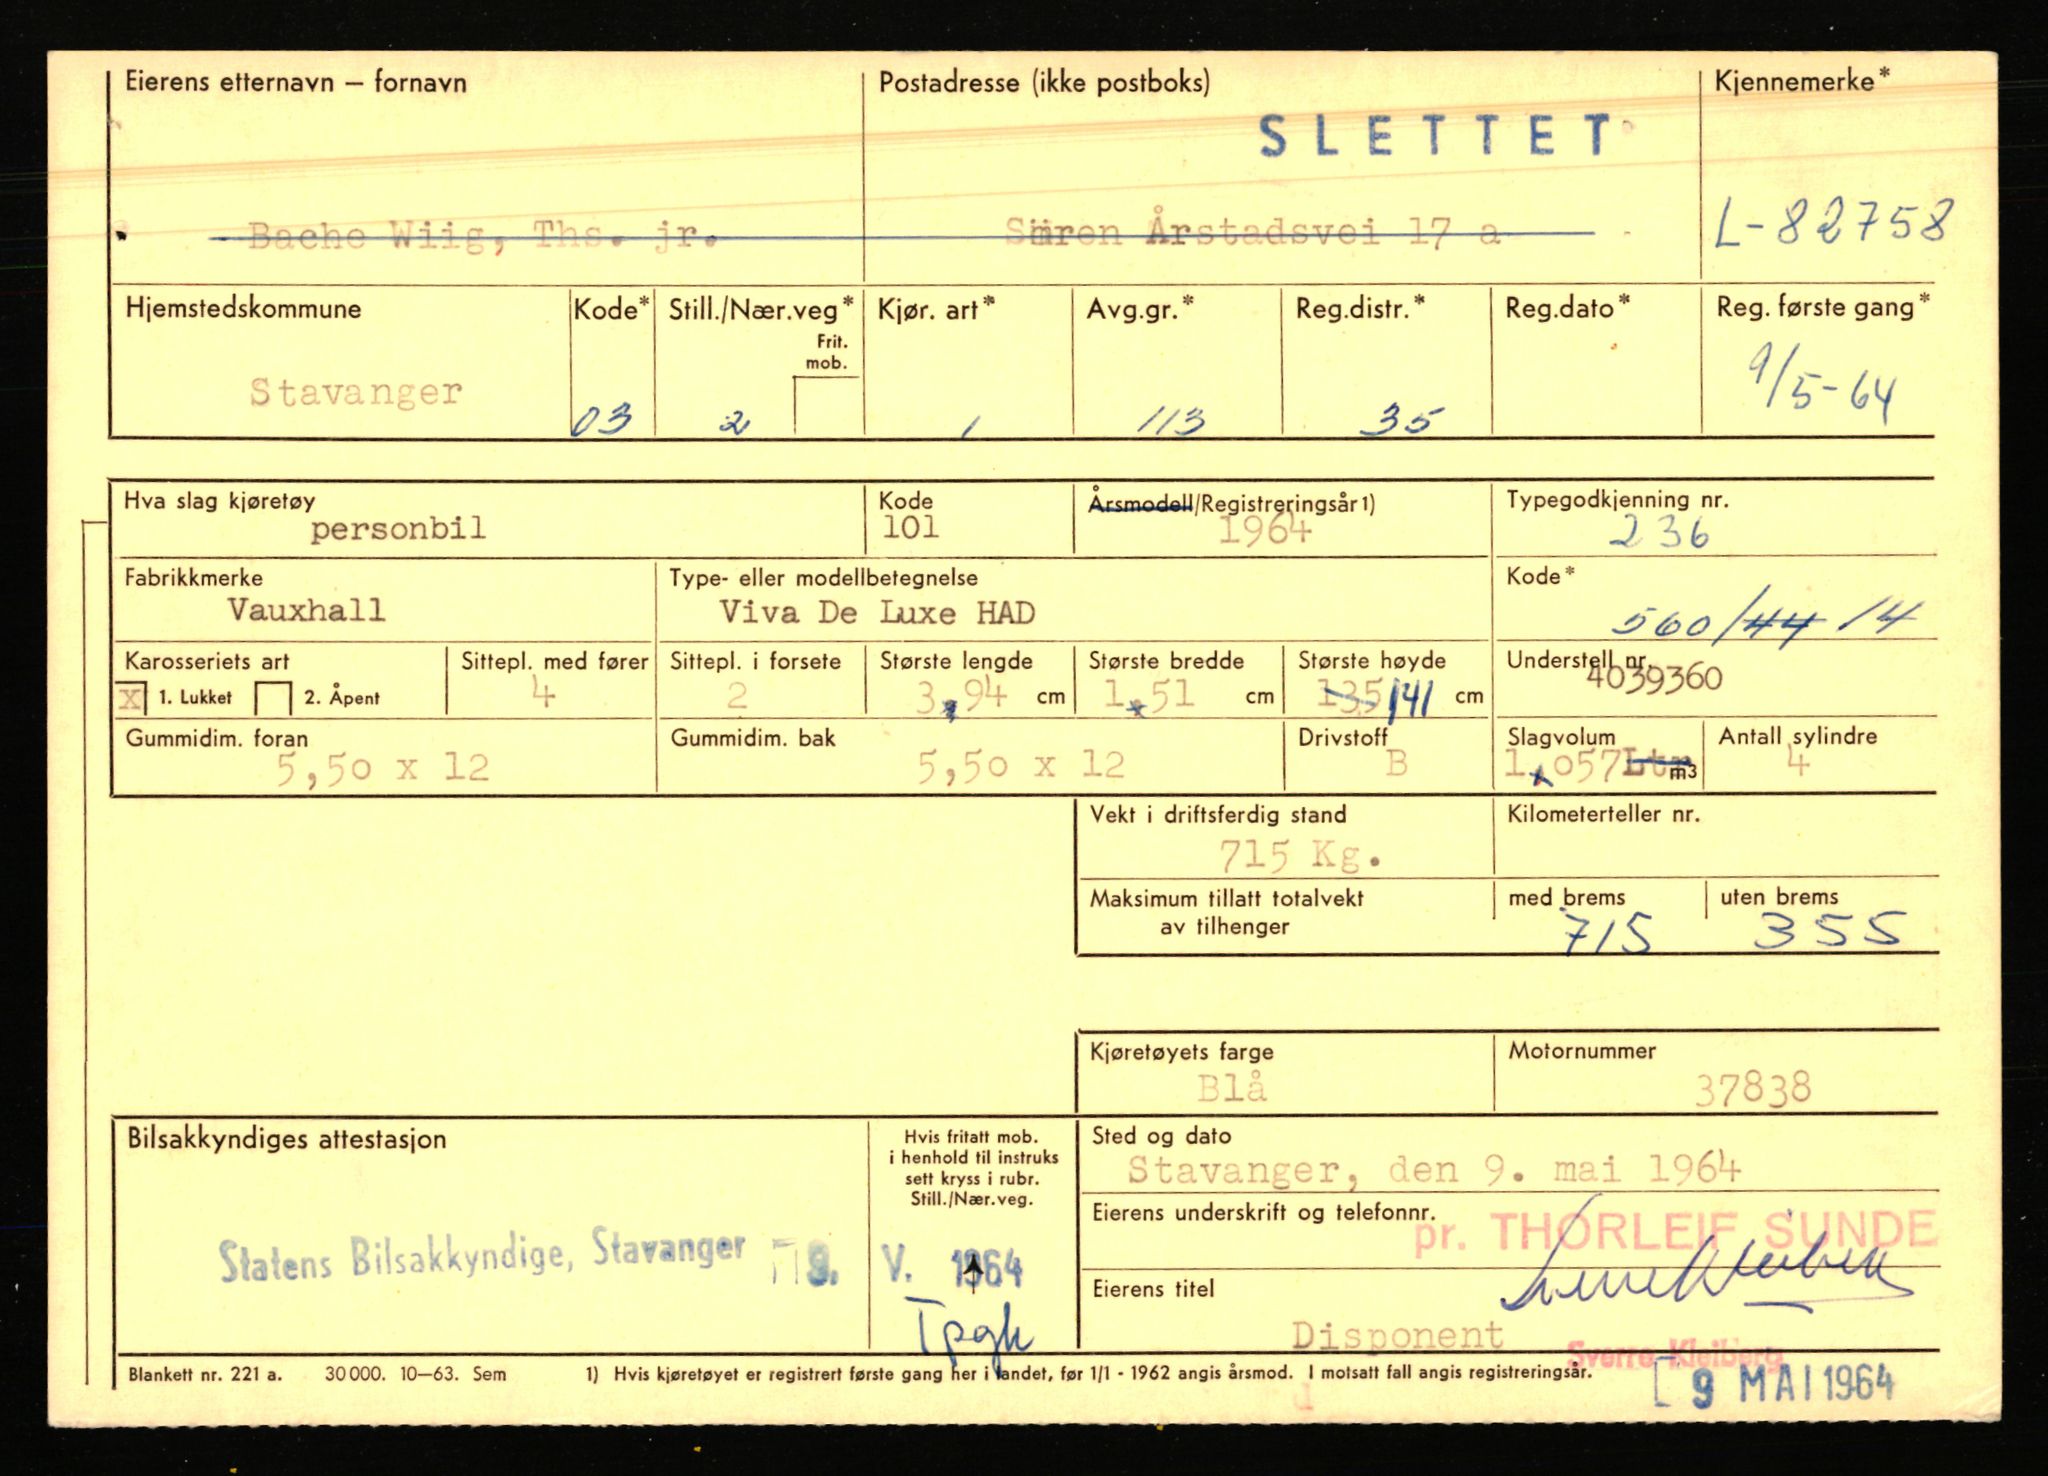 Eierens etternavn – fornavn Postadresse (ikke postboks) Kjennemerke*
SLETTET
Bache Wiig, Ths. jr. Sören Årstadsvei 17 a L-82758
Hjemstedskommune Kode* Still./Nær.veg* Kjør. art* Avg.gr.* Reg.distr.* Reg.dato* Reg. første gang*
Frit.
mob.
Stavanger 03 2 1 113 35 9/5-64
Hva slag kjøretøy Kode Årsmodell/Registreringsår 1) Typegodkjenning nr.
personbil 101 1964 236
Fabrikkmerke Type- eller modellbetegnelse Kode*
Vauxhall Viva De Luxe HAD 560/44 14
Karosseriets art Sittepl. med fører Sittepl. i forsete Største lengde Største bredde Største høyde Understell nr.
X 1. Lukket 2. Åpent 4 2 3,94 cm 1,51 cm 135 141 cm 4039360
Gummidim. foran Gummidim. bak Drivstoff Slagvolum Antall sylindre
5,50 x 12 5,50 x 12 B 1,057 Ltr m3 4
Vekt i driftsferdig stand Kilometerteller nr.
715 Kg.
Maksimum tillatt totalvekt med brems uten brems
av tilhenger 715 355
Kjøretøyets farge Motornummer
Blå 37838
Bilsakkyndiges attestasjon Hvis fritatt mob. Sted og dato
i henhold til instruks
sett kryss i rubr.
Still./Nær.veg.
Stavanger, den 9. mai 1964
Eierens underskrift og telefonnr.
pr. THORLEIF SUNDE
Statens Bilsakkyndige, Stavanger 9. V. 1964
Eierens titel
Disponent
Sverre Kleiberg
Blankett nr. 221 a. 30 000. 10–63. Sem 1) Hvis kjøretøyet er registrert første gang her i landet, før 1/1 - 1962 angis årsmod. I motsatt fall angis registreringsår.
9 MAI 1964